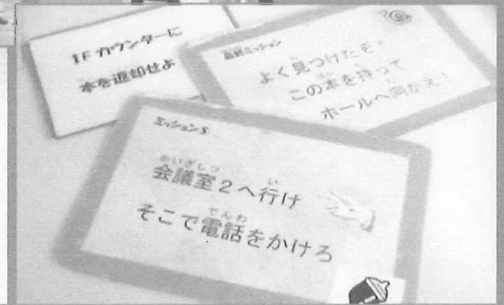 1Fカウンターに
本を返却せよ
最終ミッション
よく見つけたぞ!
この本を持って
ホールへ向かえ!
ミッション5
かいぎしつ い
会議室2へ行け
でんわ
そこで電話をかけろ